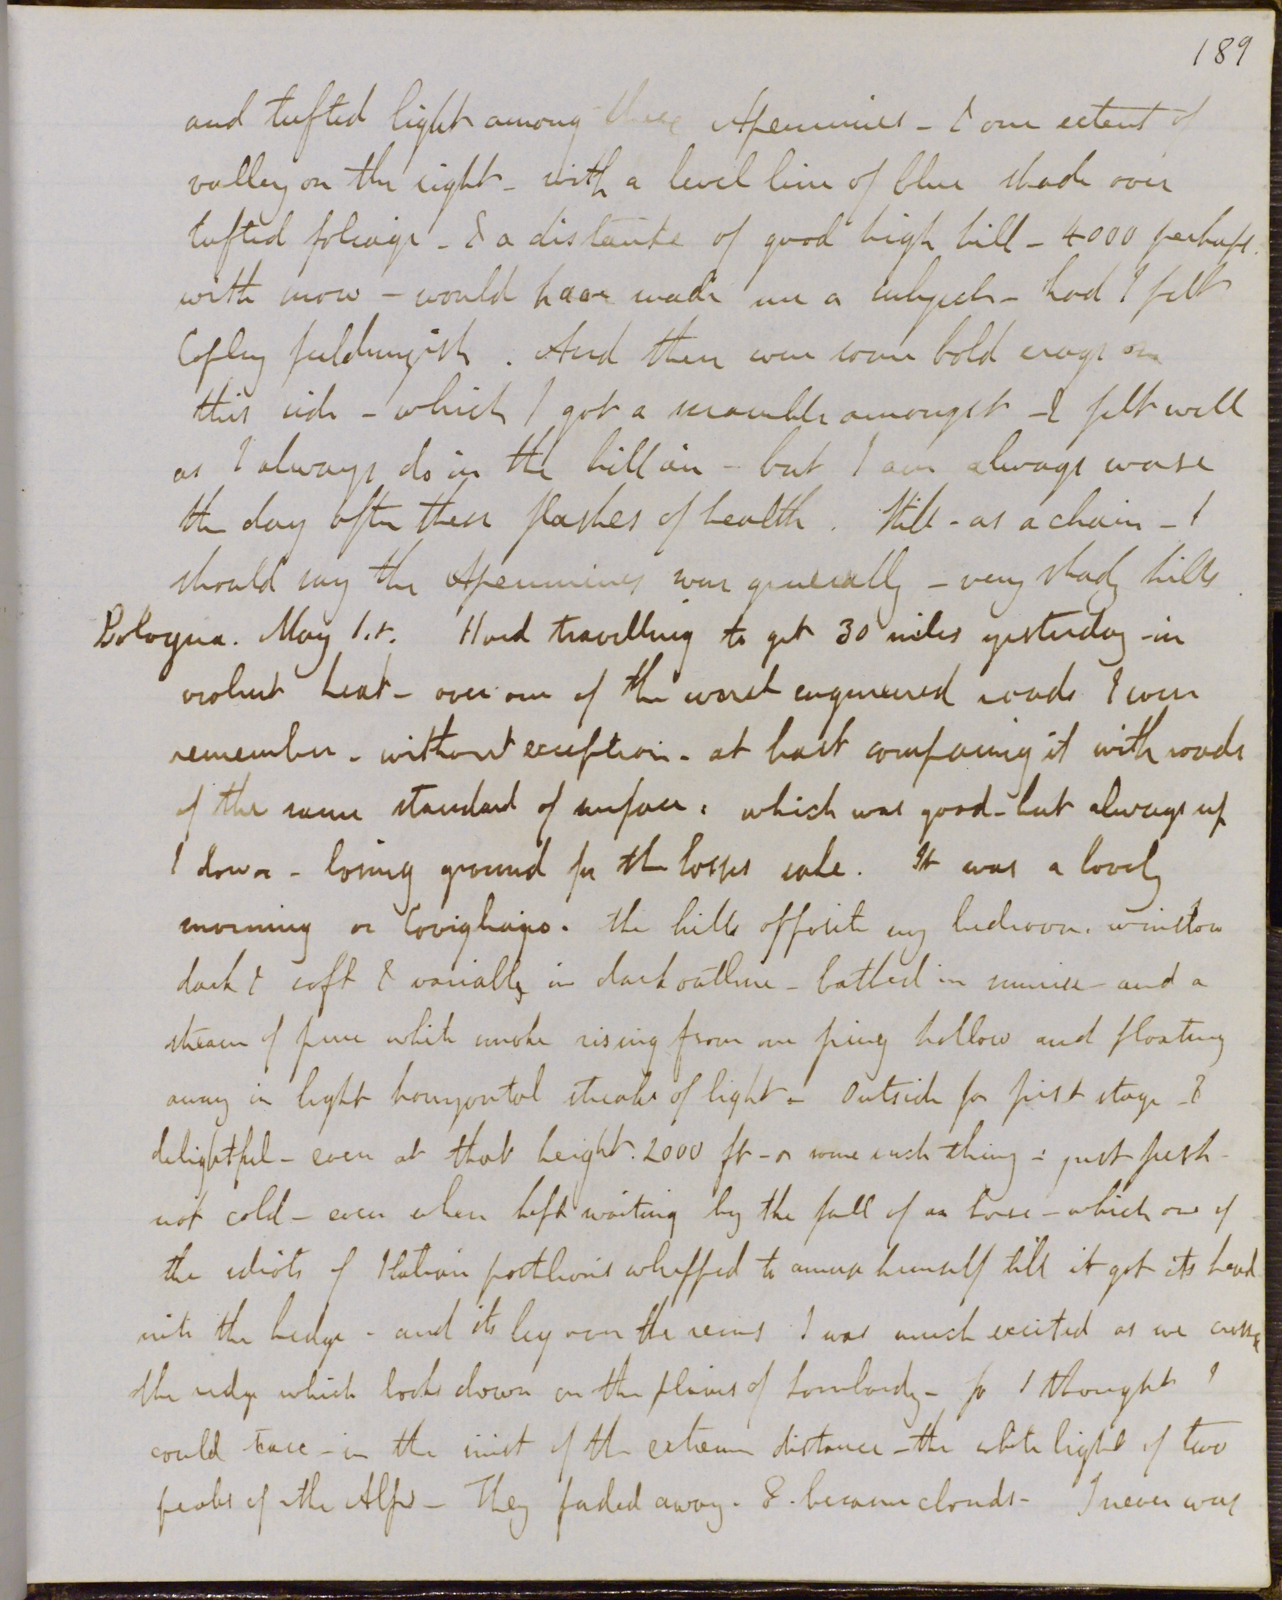 189
and tufted light among these Apennines - & one extent of
valley on the right - with a level line of blue shade over
tufted foliage - & a distance of good high hill - 4000 perhaps.
with snow - would have made me a subject - had I felt
Copley fieldingish. And there were some bold crags on
this side - which I got a scramble amongst - & felt well
as I always do in the hill air - but I am always worse
the day after these flashes of health. Still - as a chain - I
should say the Apennines was generally - very shady hills
Bologna. May 1st. Hard travelling to get 30 miles yesterday - in
violent heat - over one of the worst engineered roads I ever
remember - without exception - at least comparing it with roads
of the same standard of surface, which was good - but always up
& down - losing ground for the losses sake. It was a lovely
morning at Covigliajo. the hills opposite my bedroom window
dark & soft & variable in dark outline - bathed in sunrise - and a
stream of pure white smoke rising from one piney hollow and floating
away in light horizontal streaks of light - Outside for first stage - &
delightful - even at that height. 2000 ft - or some such thing - just fresh -
not cold - even when left waiting by the fall of a horse - which one of
the idiots of Italian postilions whipped to amuse himself till it got its head
into the hedge - and its leg over the reins I was much excited as we crossed
the ridge which looks down on the plains of Lombardy - for I thought I
could trace - in the mist of the extreme distance - the white light of two
peaks of the Alps - They faded away - & became clouds - I never was